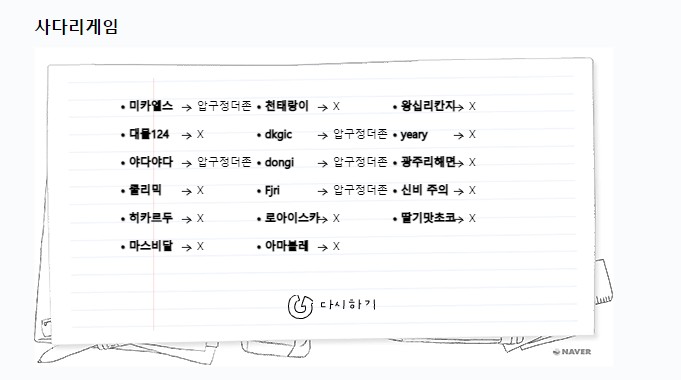 사다리게임
• 미카엘스 → 압구정더존 • 천태랑이 → X • 왕십리칸지→ X
• 대물124 → X • dkgic → 압구정더존 • yeary → X
• 야다야다 → 압구정더존 • dongi → 압구정더존 • 광주리해면→ X
• 쿨리믹 → X • Fjri → 압구정더존 • 신비 주의 → X
• 히카르두 → X • 로아이스카→ X • 딸기맛초코→ X
• 마스비달 → X • 아마볼레 → X
다시하기
NAVER